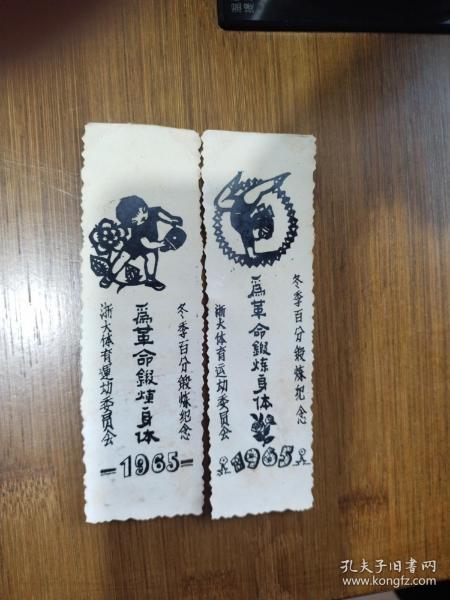 冬季百分鍛炼纪念
為革命鍛煉身体
浙大体育運动委员会
1965
冬季百分鍛炼纪念
為革命鍛炼身体
浙大体育运动委员会
1965
孔夫子旧书网
www.kongfz.com